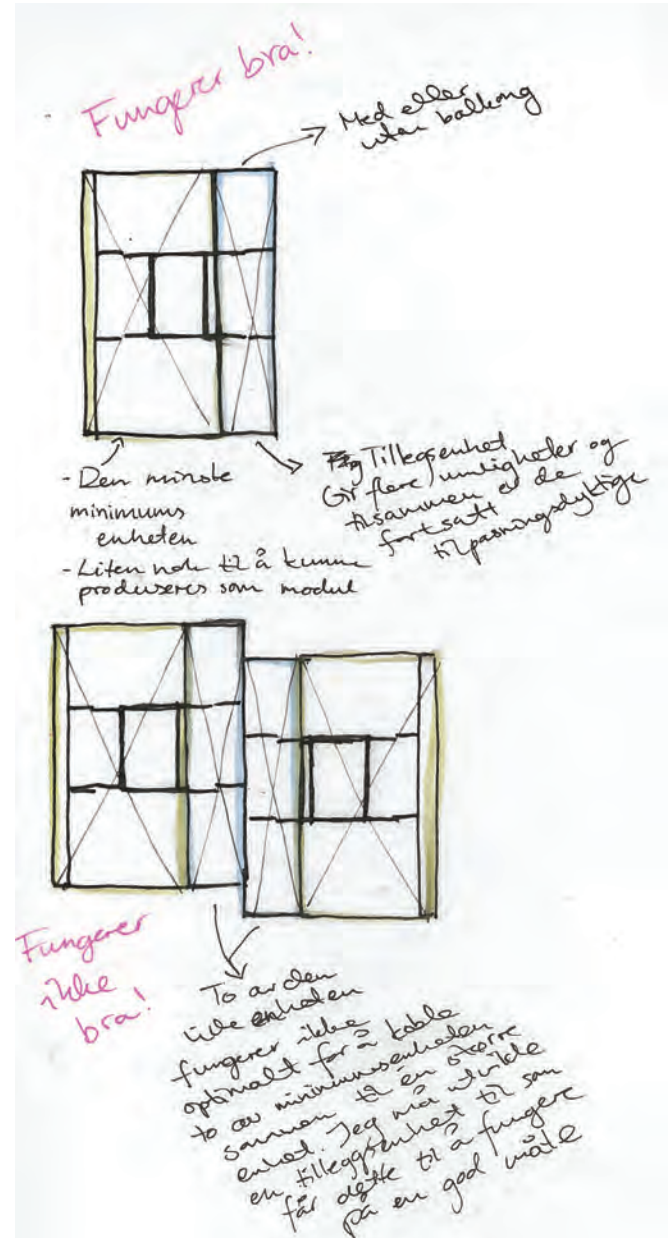 Fungerer bra!
Med eller
uten balkong
- Den minste
minimums
enheten
- Liten nok til å kunne
produseres som modul
Tilleggsenhet
Gir flere muligheter og
tilsammen er de
fortsatt
tilpasningsdyktige
Fungerer
ikke
bra!
To av den
lille enheten
fungerer ikke
optimalt for å koble
to av minimumsenheten
sammen til én større
enhet. Jeg må utvikle
en tilleggsenhet til som
får dette til å fungere
på en god måte